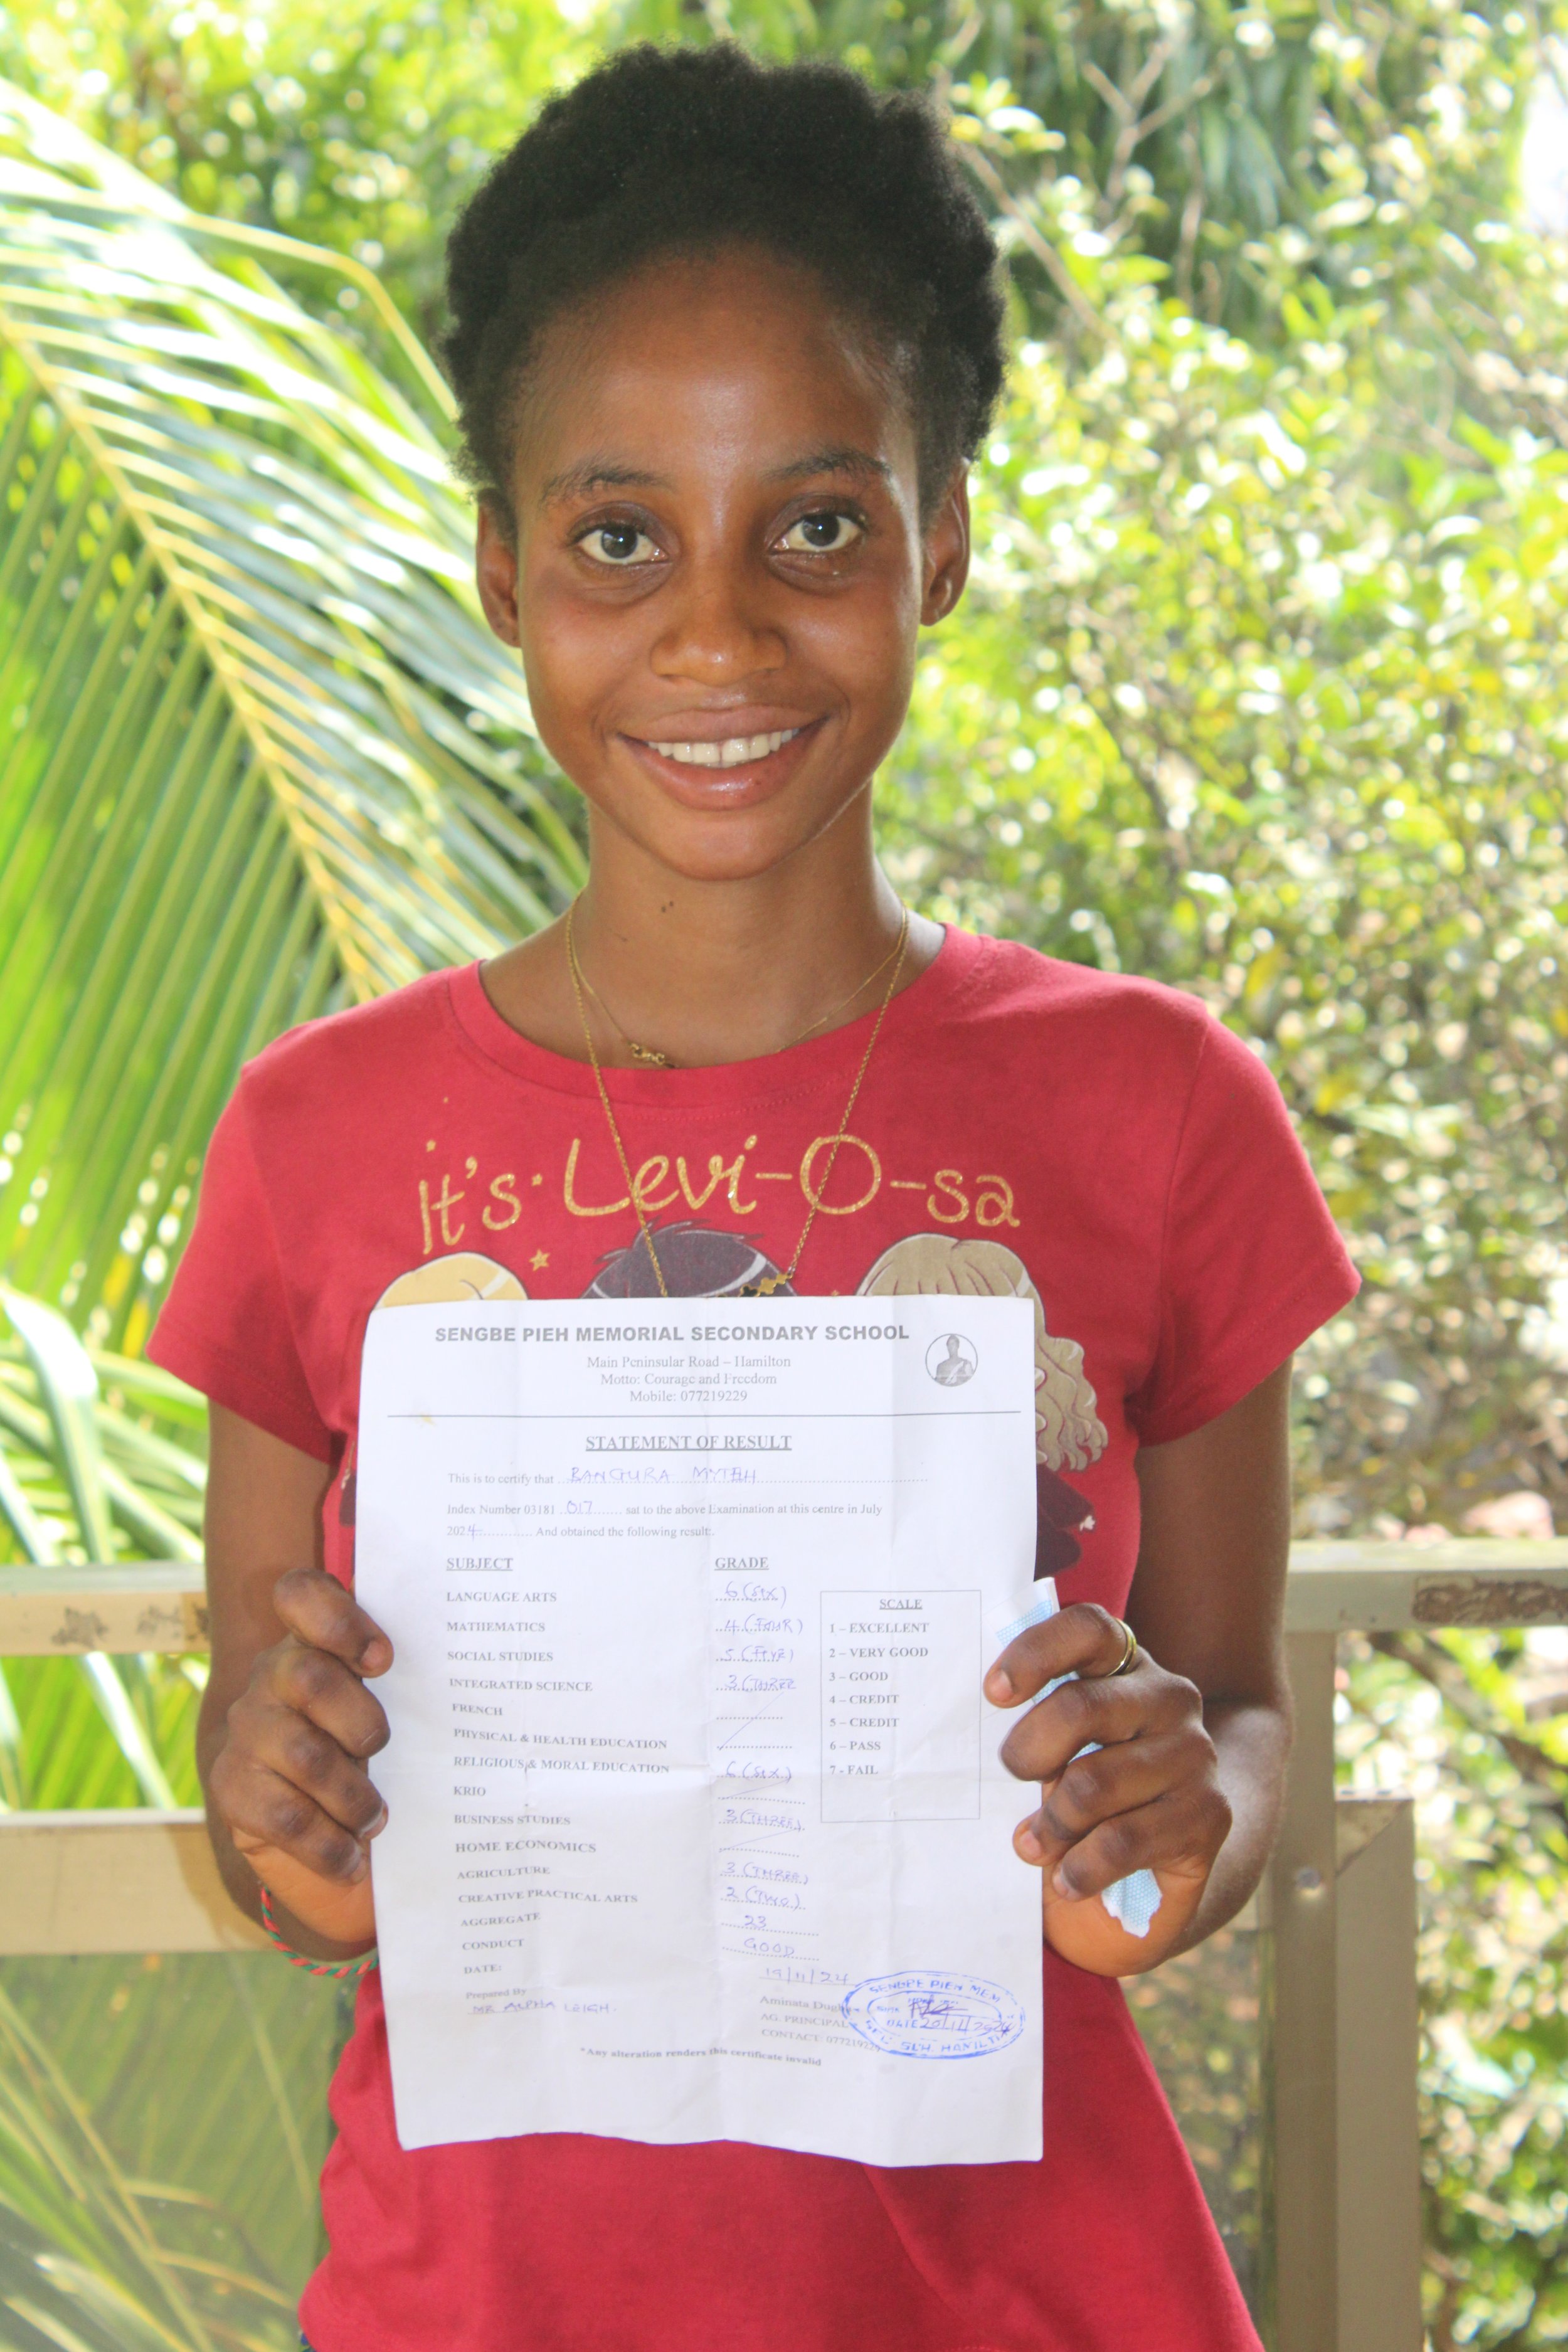 It's Levi-O-sa
SENGBE PIEH MEMORIAL SECONDARY SCHOOL
Main Peninsular Road – Hamilton
Motto: Courage and Freedom
Mobile: 077219229
STATEMENT OF RESULT
This is to certify that BANGURA MYTEH
Index Number 03181 017 sat to the above Examination at this centre in July
2024 And obtained the following result:.
SUBJECT GRADE
LANGUAGE ARTS 6 (SIX)
MATHEMATICS 4 (FOUR)
SOCIAL STUDIES 5 (FIVE)
INTEGRATED SCIENCE 3 (THREE
FRENCH
PHYSICAL & HEALTH EDUCATION
RELIGIOUS & MORAL EDUCATION 6 (SIX)
KRIO
BUSINESS STUDIES 3 (THREE)
HOME ECONOMICS
AGRICULTURE 3 (THREE)
CREATIVE PRACTICAL ARTS 2 (TWO)
AGGREGATE 23
CONDUCT GOOD
DATE: 19/11/24
SCALE
1 – EXCELLENT
2 – VERY GOOD
3 – GOOD
4 – CREDIT
5 – CREDIT
6 – PASS
7 - FAIL
Prepared By
MR ALPHA LEIGH.
Aminata
AG. PRINCIPAL
CONTACT: 077219229
*Any alteration renders this certificate invalid
SENGBE PIEH MEM
DATE 20/11/2024